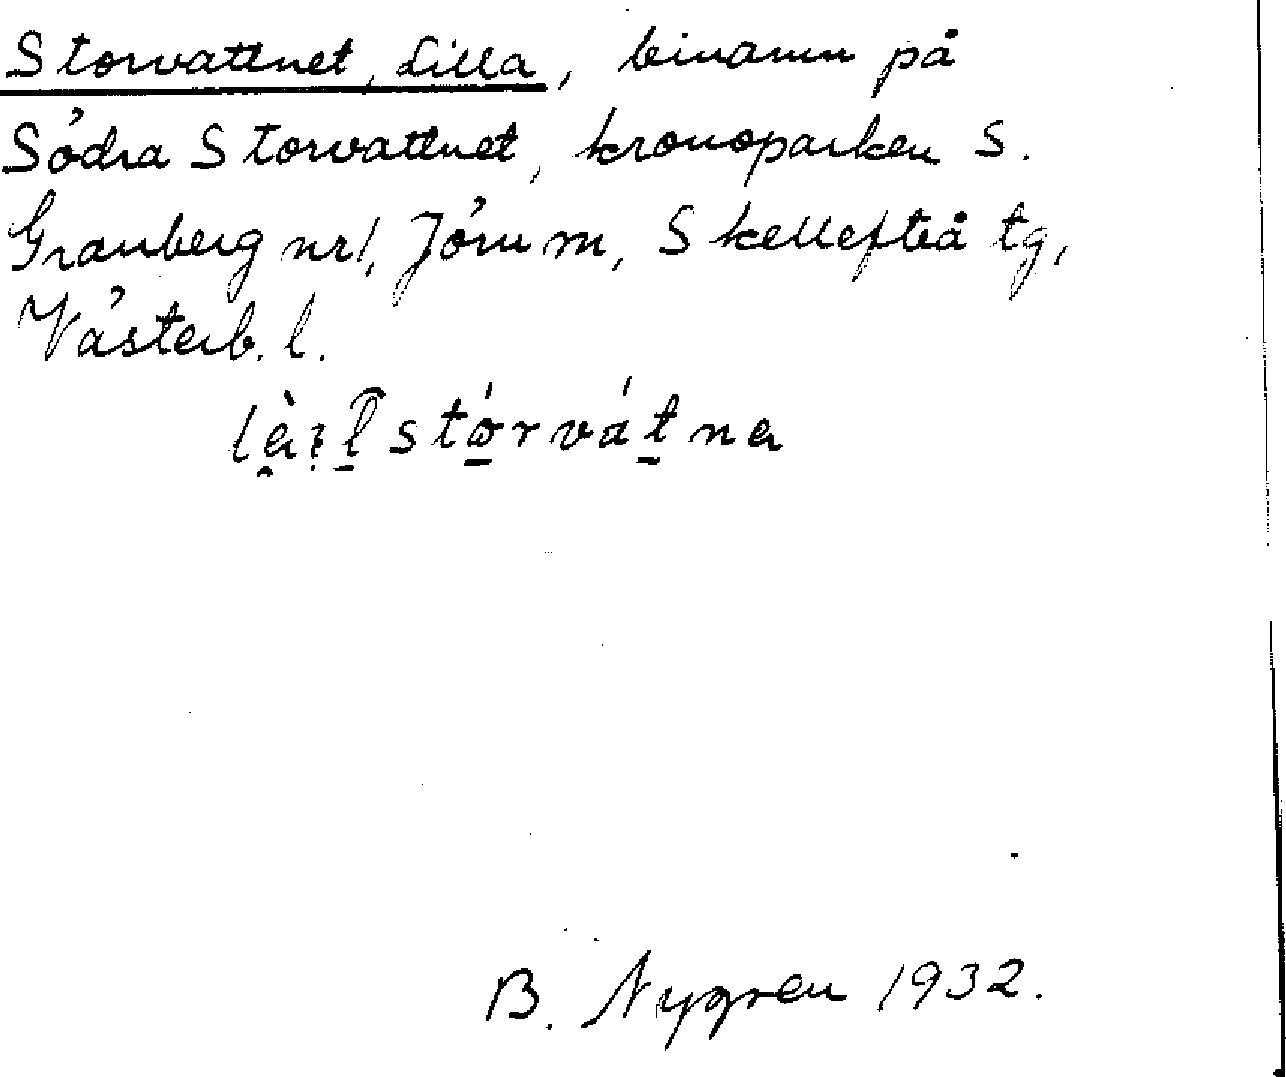 Storvattnet, Lilla, binamn på
Södra Storvattnet, kronoparken S.
Granberg nr 1, Jörn m, Skellefteå tg,
Västerb. l.
stǿrvátna
B. Nygren 1932.